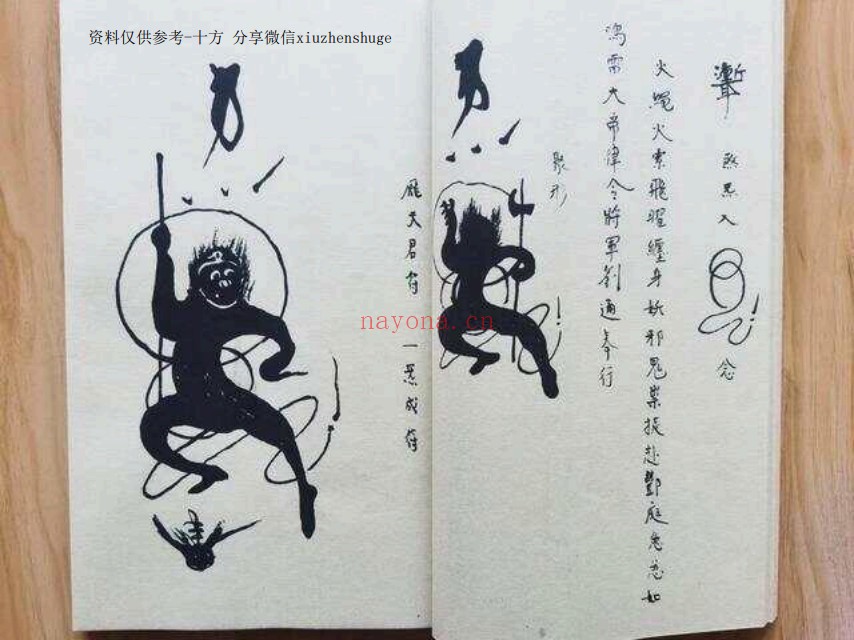 资料仅供参考-十方 分享微信xiuzhenshuge
煞炁入
念
火繩火索飛曜纏身斬邪鬼祟捉赴酆庭急急如
鴻雷大帝律令將軍劉通奉行
聚形
龐天君符 一炁成符
nayona.cn